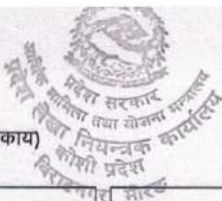 प्रदेश सरकार
आर्थिक मामिला तथा योजना मन्त्रालय
प्रदेश लेखा नियन्त्रक कार्यालय
कोशी प्रदेश
विराटनगर, मोरङ
काय)